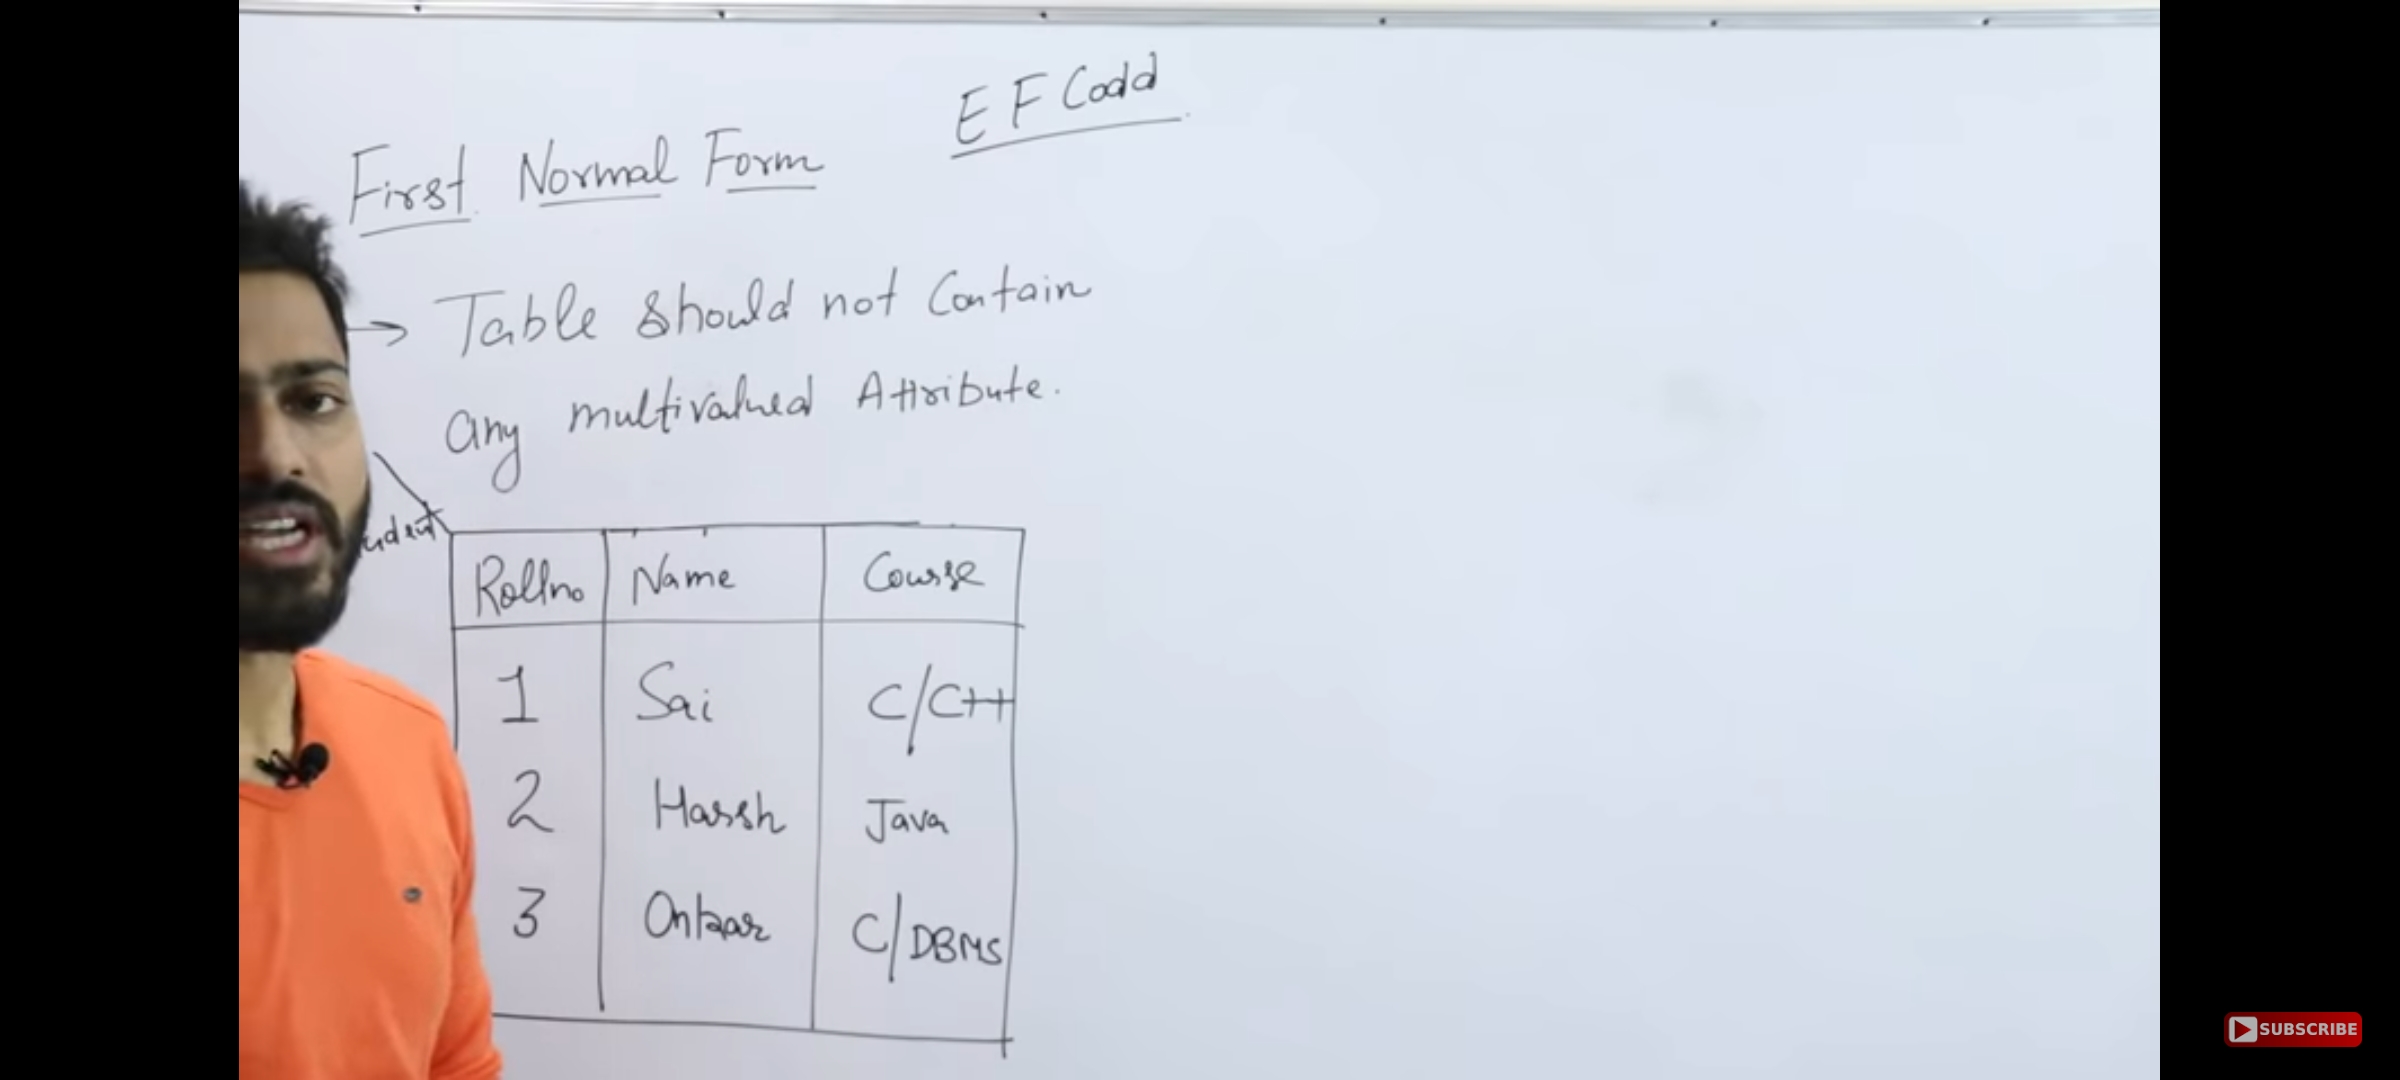 E F Codd
First Normal Form
→ Table should not Contain
any multivalued Attribute.
Rollno Name Course
1 Sai C/C++
2 Harsh Java
3 Onkar C/DBMS
SUBSCRIBE